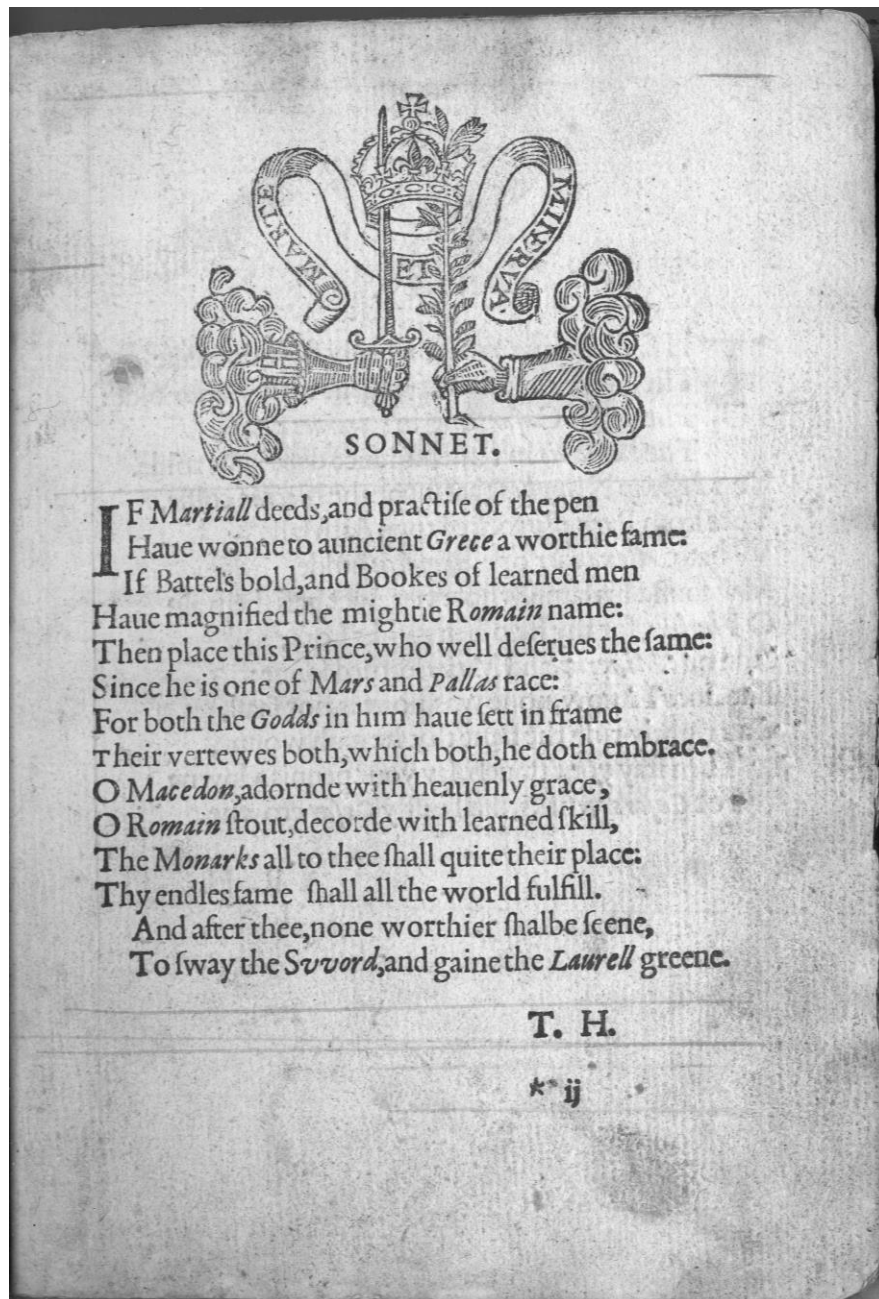 MARTE ET MINERVA.
SONNET.
IF Martiall deeds,and practiſe of the pen
Haue wonne to auncient Grece a worthie fame:
If Battels bold,and Bookes of learned men
Haue magnified the mightie Romain name:
Then place this Prince,who well deſerues the ſame:
Since he is one of Mars and Pallas race:
For both the Godds in him haue ſett in frame
Their vertewes both,which both,he doth embrace.
O Macedon,adornde with heauenly grace,
O Romain ſtout,decorde with learned ſkill,
The Monarks all to thee ſhall quite their place:
Thy endles fame ſhall all the world fulfill.
And after thee,none worthier ſhalbe ſeene,
To ſway the Svvord,and gaine the Laurell greene.
T. H.
* ij